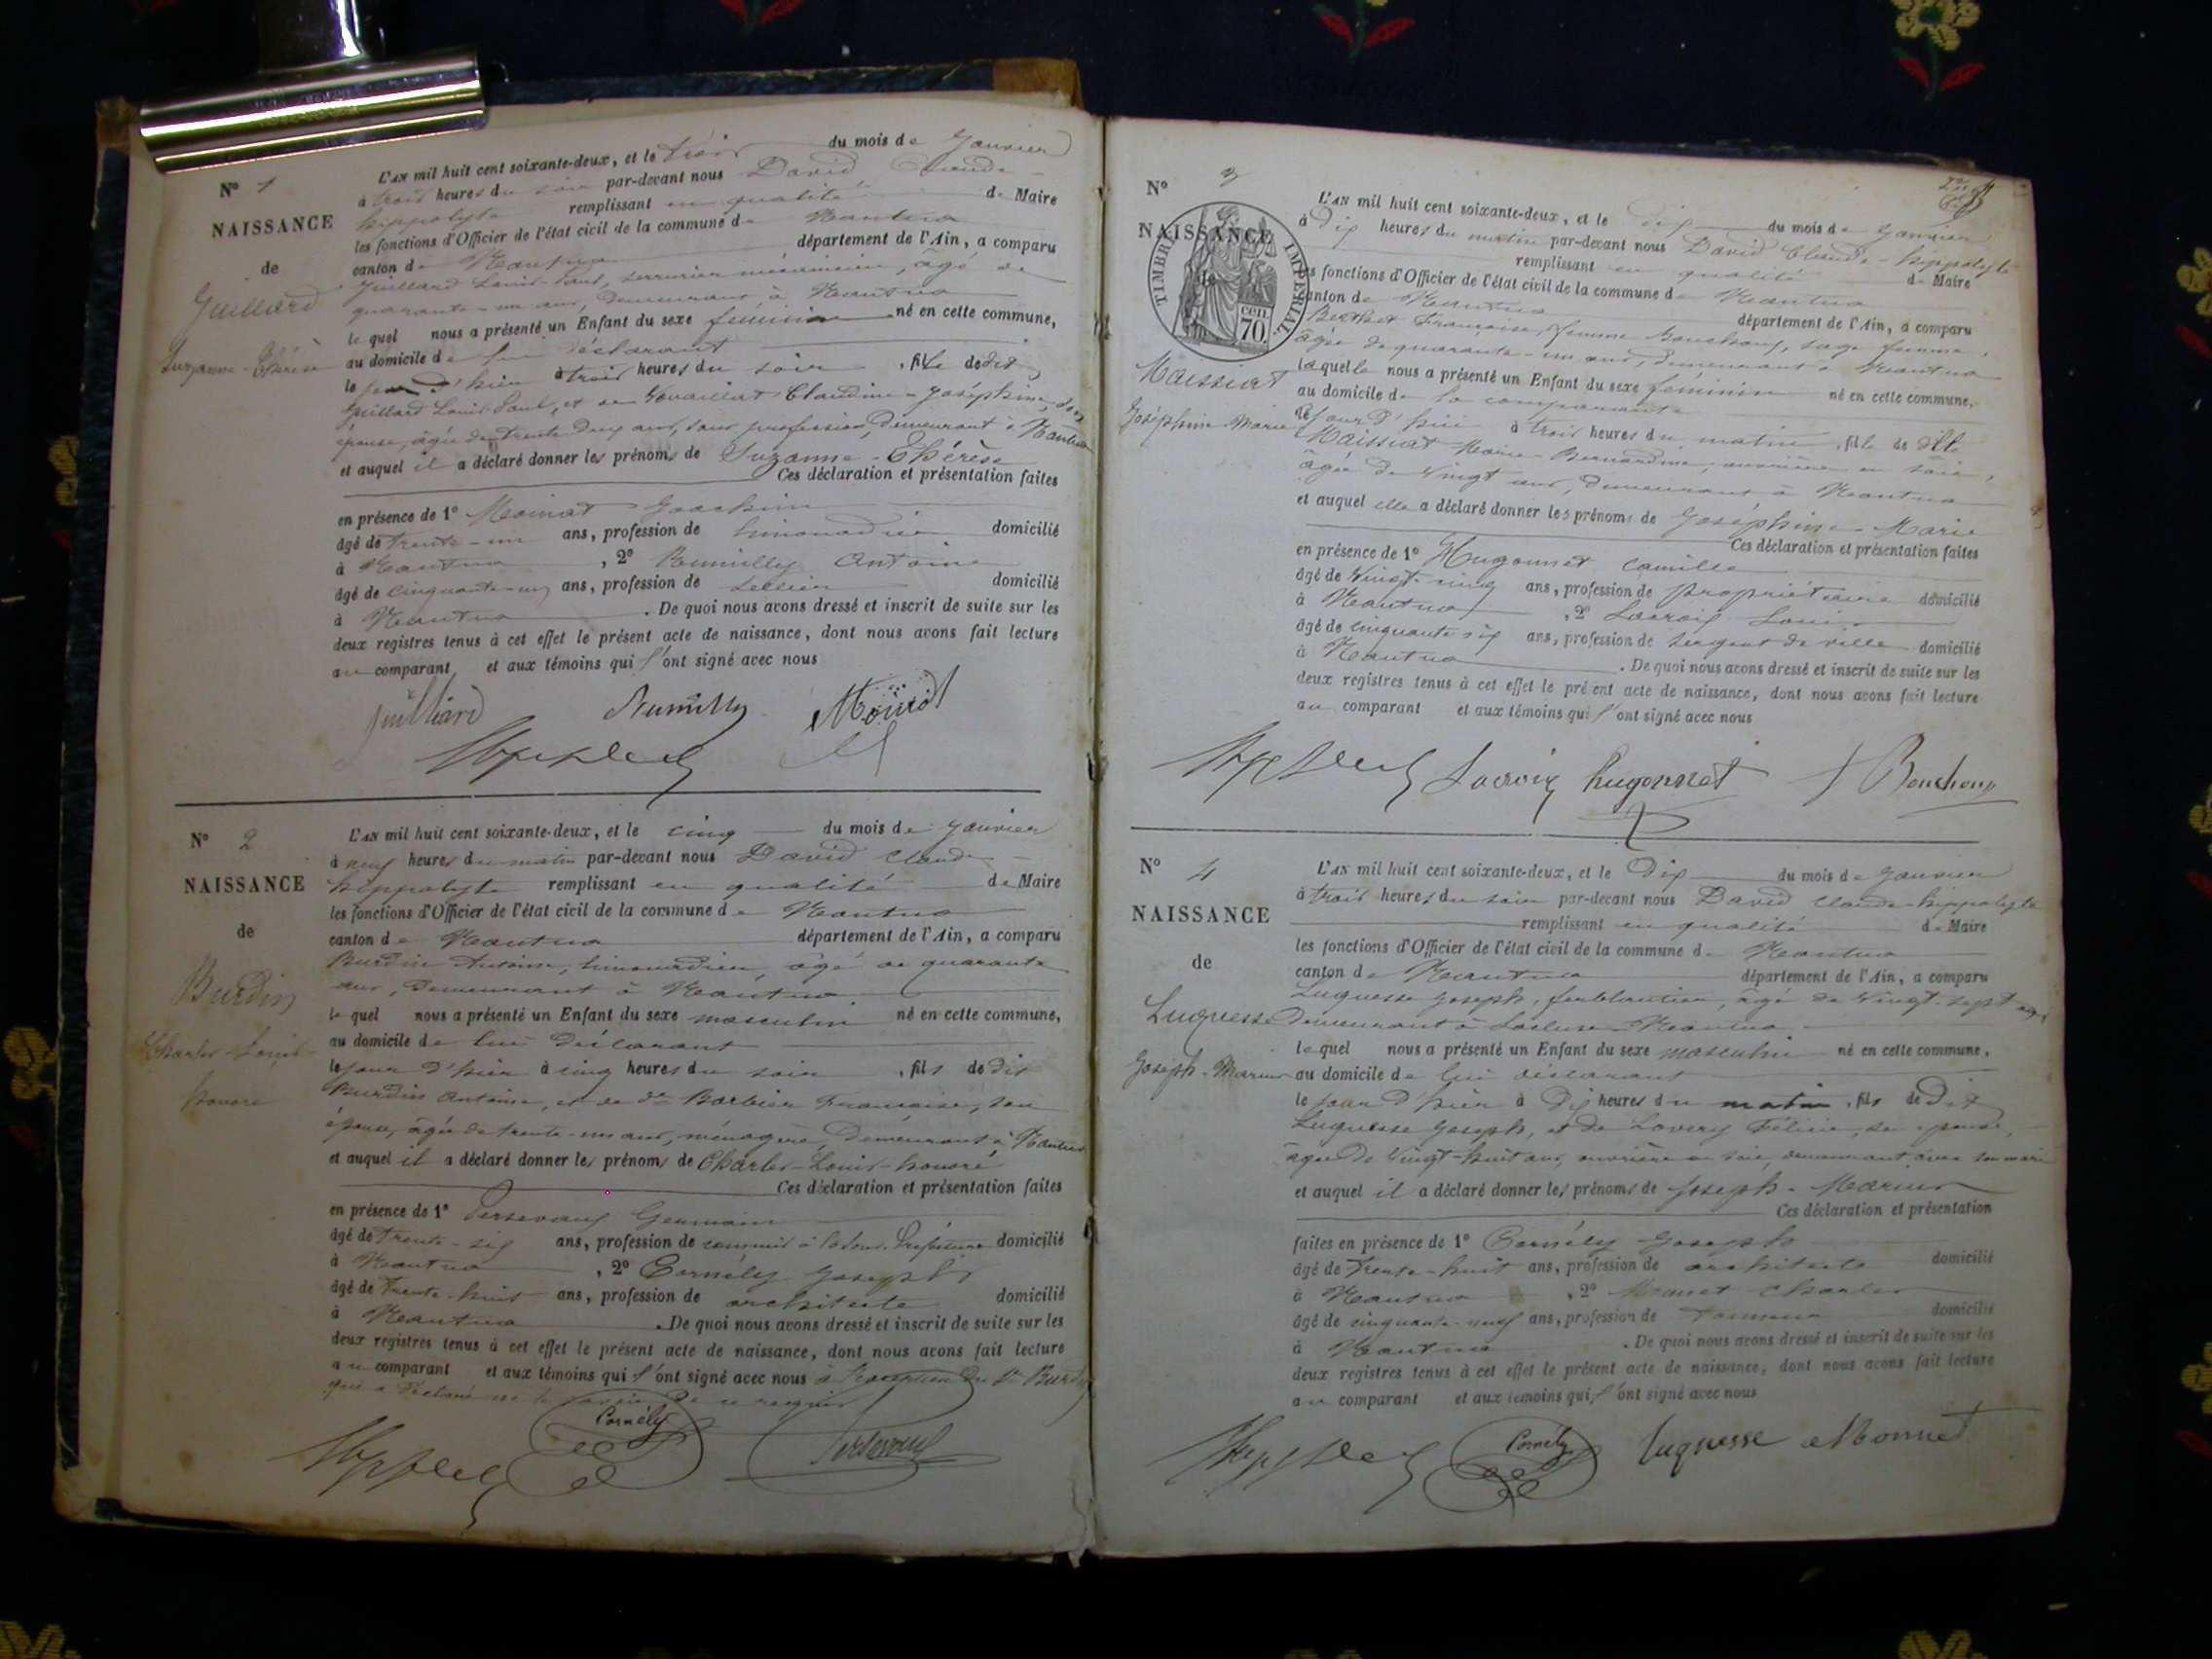 N° 1
NAISSANCE
de
Guillard
Suzanne-Thérèse
L'AN mil huit cent soixante-deux, et le trois du mois de Janvier
à trois heures du soir par-devant nous David Claude
hippolyte remplissant en qualité de Maire
les fonctions d'Officier de l'état civil de la commune de Nantua
canton de Nantua département de l'Ain, a comparu
Guillard Louis-Paul, serrurier mécanicien, âgé de
quarante-un ans, demeurant à Nantua
lequel nous a présenté un Enfant du sexe féminin né en cette commune,
au domicile de lui déclarant
le jour d'hier à trois heures du soir, fille dedit
Guillard Louis-Paul, et de Claudine-Joséphine, son
épouse, âgée de trente deux ans, sans profession, demeurant à Nantua
et auquel il a déclaré donner les prénoms de Suzanne-Thérèse
Ces déclaration et présentation faites
en présence de 1° Moinat Joachim
âgé de trente-un ans, profession de limonadier domicilié
à Nantua, 2° Rumilly Antoine
âgé de cinquante-un ans, profession de sellier domicilié
à Nantua. De quoi nous avons dressé et inscrit de suite sur les
deux registres tenus à cet effet le présent acte de naissance, dont nous avons fait lecture
au comparant et aux témoins qui l'ont signé avec nous
Guillard Rumilly Moinat
N° 2
NAISSANCE
de
Burdin
Charles-Louis-
honoré
L'AN mil huit cent soixante-deux, et le cinq du mois de Janvier
à neuf heures du matin par-devant nous David Claude
hippolyte remplissant en qualité de Maire
les fonctions d'Officier de l'état civil de la commune de Nantua
canton de Nantua département de l'Ain, a comparu
Burdin Antoine, limonadier, âgé de quarante
ans, demeurant à Nantua
lequel nous a présenté un Enfant du sexe masculin né en cette commune,
au domicile de lui déclarant
le jour d'hier à cinq heures du soir, fils dedit
Burdin Antoine, et de de Barbier Françoise, son
épouse, âgée de trente-un ans, ménagère, demeurant à Nantua
et auquel il a déclaré donner les prénoms de Charles-Louis-honoré
Ces déclaration et présentation faites
en présence de 1° Germain
âgé de trente-six ans, profession de commis à la sous-Préfecture domicilié
à Nantua, 2° Cornély Joseph
âgé de trente-huit ans, profession de architecte domicilié
à Nantua. De quoi nous avons dressé et inscrit de suite sur les
deux registres tenus à cet effet le présent acte de naissance, dont nous avons fait lecture
au comparant et aux témoins qui l'ont signé avec nous à l'exception du Sr Burdin
qui a déclaré ne le savoir de ce requis
Cornély
N° 3
NAISSANCE
de
TIMBRE IMPÉRIAL
70 cen.
Maissiat
Joséphine Marie
L'AN mil huit cent soixante-deux, et le dix du mois de Janvier
à Dix heures du matin par-devant nous David Claude-hippolyte
remplissant en qualité de Maire
les fonctions d'Officier de l'état civil de la commune de Nantua
canton de Nantua département de l'Ain, a comparu
Berthet Françoise, femme Bouchony, sage femme,
âgée de quarante-un ans, demeurant à Nantua
laquelle nous a présenté un Enfant du sexe féminin né en cette commune,
au domicile de la comparante
le jour d'hui à trois heures du matin, fille de dlle
Maissiat Marie-Bernardine, ouvrière en soie,
âgée de vingt ans, demeurant à Nantua
et auquel elle a déclaré donner les prénoms de Joséphine-Marie
Ces déclaration et présentation faites
en présence de 1° Hugonnet Camille
âgé de vingt-cinq ans, profession de propriétaire domicilié
à Nantua, 2° Lacroix Louis
âgé de cinquante six ans, profession de sergent de ville domicilié
à Nantua. De quoi nous avons dressé et inscrit de suite sur les
deux registres tenus à cet effet le présent acte de naissance, dont nous avons fait lecture
au comparant et aux témoins qui l'ont signé avec nous
Lacroix hugonnet f Bouchony
N° 4
NAISSANCE
de
Luquesse
Joseph-Marius
L'AN mil huit cent soixante-deux, et le Dix du mois de Janvier
à trois heures du soir par-devant nous David Claude hippolyte
remplissant en qualité de Maire
les fonctions d'Officier de l'état civil de la commune de Nantua
canton de Nantua département de l'Ain, a comparu
Luquesse Joseph, ferblantier, âgé de vingt-sept ans
demeurant à Nantua
lequel nous a présenté un Enfant du sexe masculin né en cette commune,
au domicile de lui déclarant
le jour d'hier à Dix heures du matin, fils dedit
Luquesse Joseph, et de Félicie, son épouse,
âgée de vingt-huit ans, ouvrière en soie, demeurant avec son mari
et auquel il a déclaré donner les prénoms de Joseph-Marius
Ces déclaration et présentation
faites en présence de 1° Cornély Joseph
âgé de trente-huit ans, profession de architecte domicilié
à Nantua, 2° Monnet Charles
âgé de cinquante-neuf ans, profession de domicilié
à Nantua. De quoi nous avons dressé et inscrit de suite sur les
deux registres tenus à cet effet le présent acte de naissance, dont nous avons fait lecture
au comparant et aux témoins qui l'ont signé avec nous
Cornély Luquesse Monnet